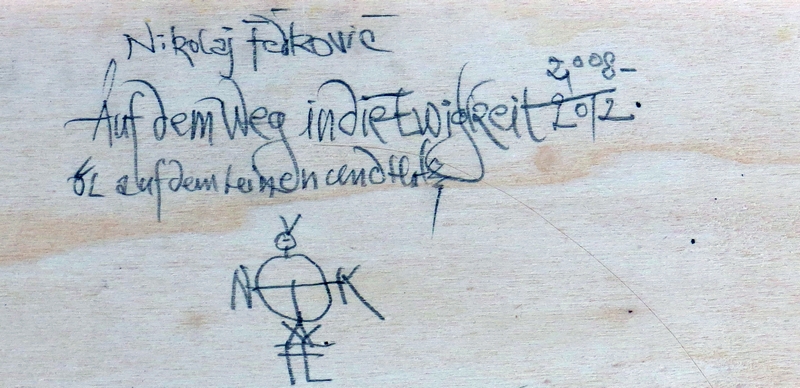 Nikolaj Fedkovič
Auf dem Weg in die Ewigkeit 2008-2012.
ÖL auf dem Leinen und Holz
N K